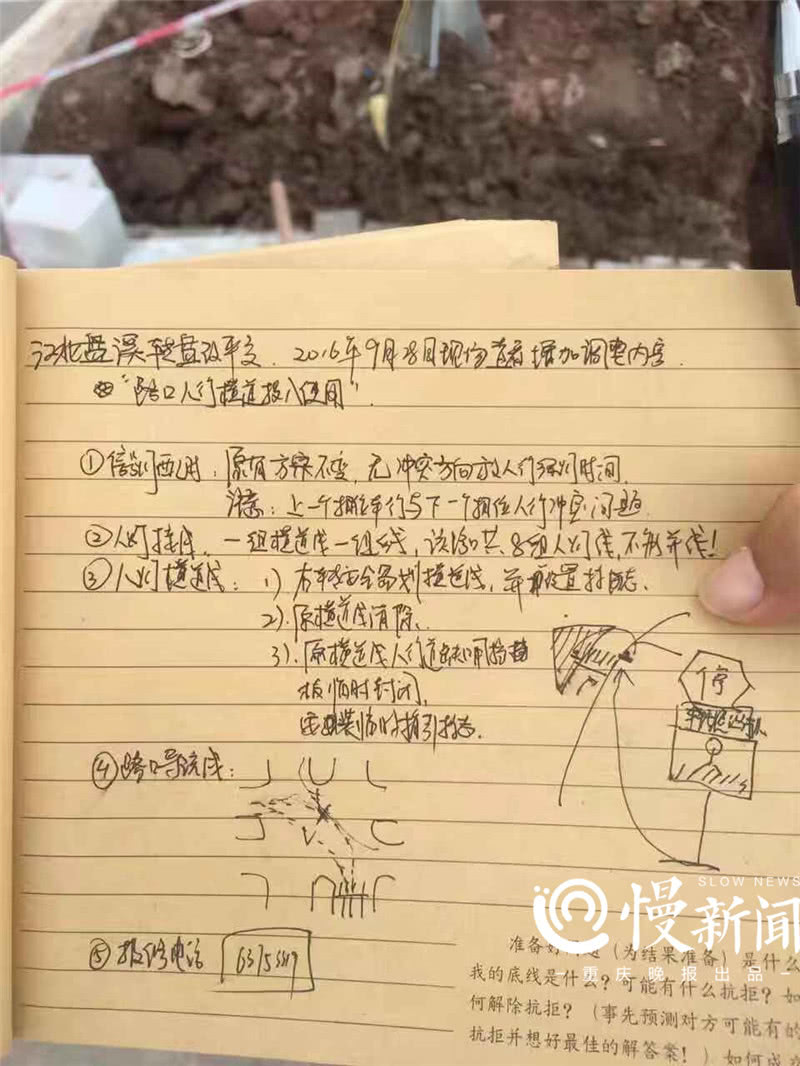 江北盘溪转盘改平交. 2016年9月28日现场查看增加调整内容.
"路口人行横道投入使用".
①信号灯配时: 原有方案不变, 无冲突方向放人行绿灯时间.
注意: 上一个相位车行与下一个相位人行冲突问题.
②人灯接线. 一组横道线一组线, 该路口共8组人灯线, 不能并线!
③人行横道线: 1) 右车道全部划横道线, 并设置标志.
2). 原横道线消除.
3). 原横道线人行道缺口用挡
板临时封闭,
安装临时指引标志.
停
④路口导流线:
⑤报修电话
SLOW NEWS
慢新闻
重庆晚报出品
准备好（为结果准备）是什么
我的底线是什么？可能有什么抗拒？如
何解除抗拒？（事先预测对方可能有的
抗拒并想好最佳的解答案！）如何成